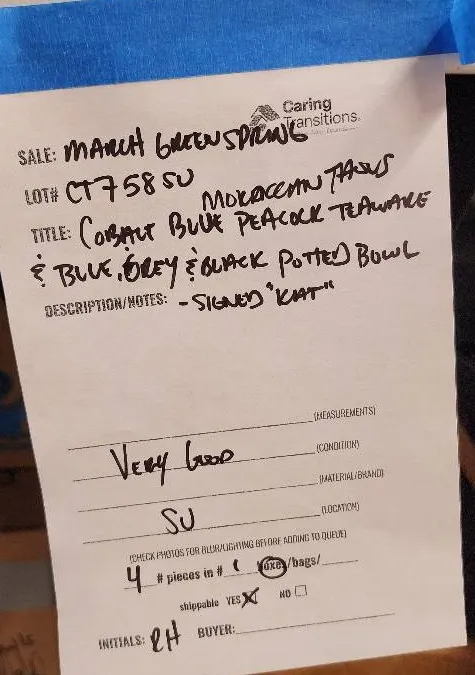 Caring
Transitions.
SALE: MARCH GREENSPRING
LOT# CT758SU
MOROCCAN
TITLE: COBALT BLUE PEACOCK TEAWARE
& BLUE, GREY & BLACK POTTED BOWL
DESCRIPTION/NOTES: -SIGNED "KIAT"
(MEASUREMENTS)
VERY GOOD (CONDITION)
(MATERIAL/BRAND)
SU (LOCATION)
(CHECK PHOTOS FOR BLUR/LIGHTING BEFORE ADDING TO QUEUE)
4 # pieces in # 1 boxes/bags/
shippable YES X NO
INITIALS: RH BUYER: